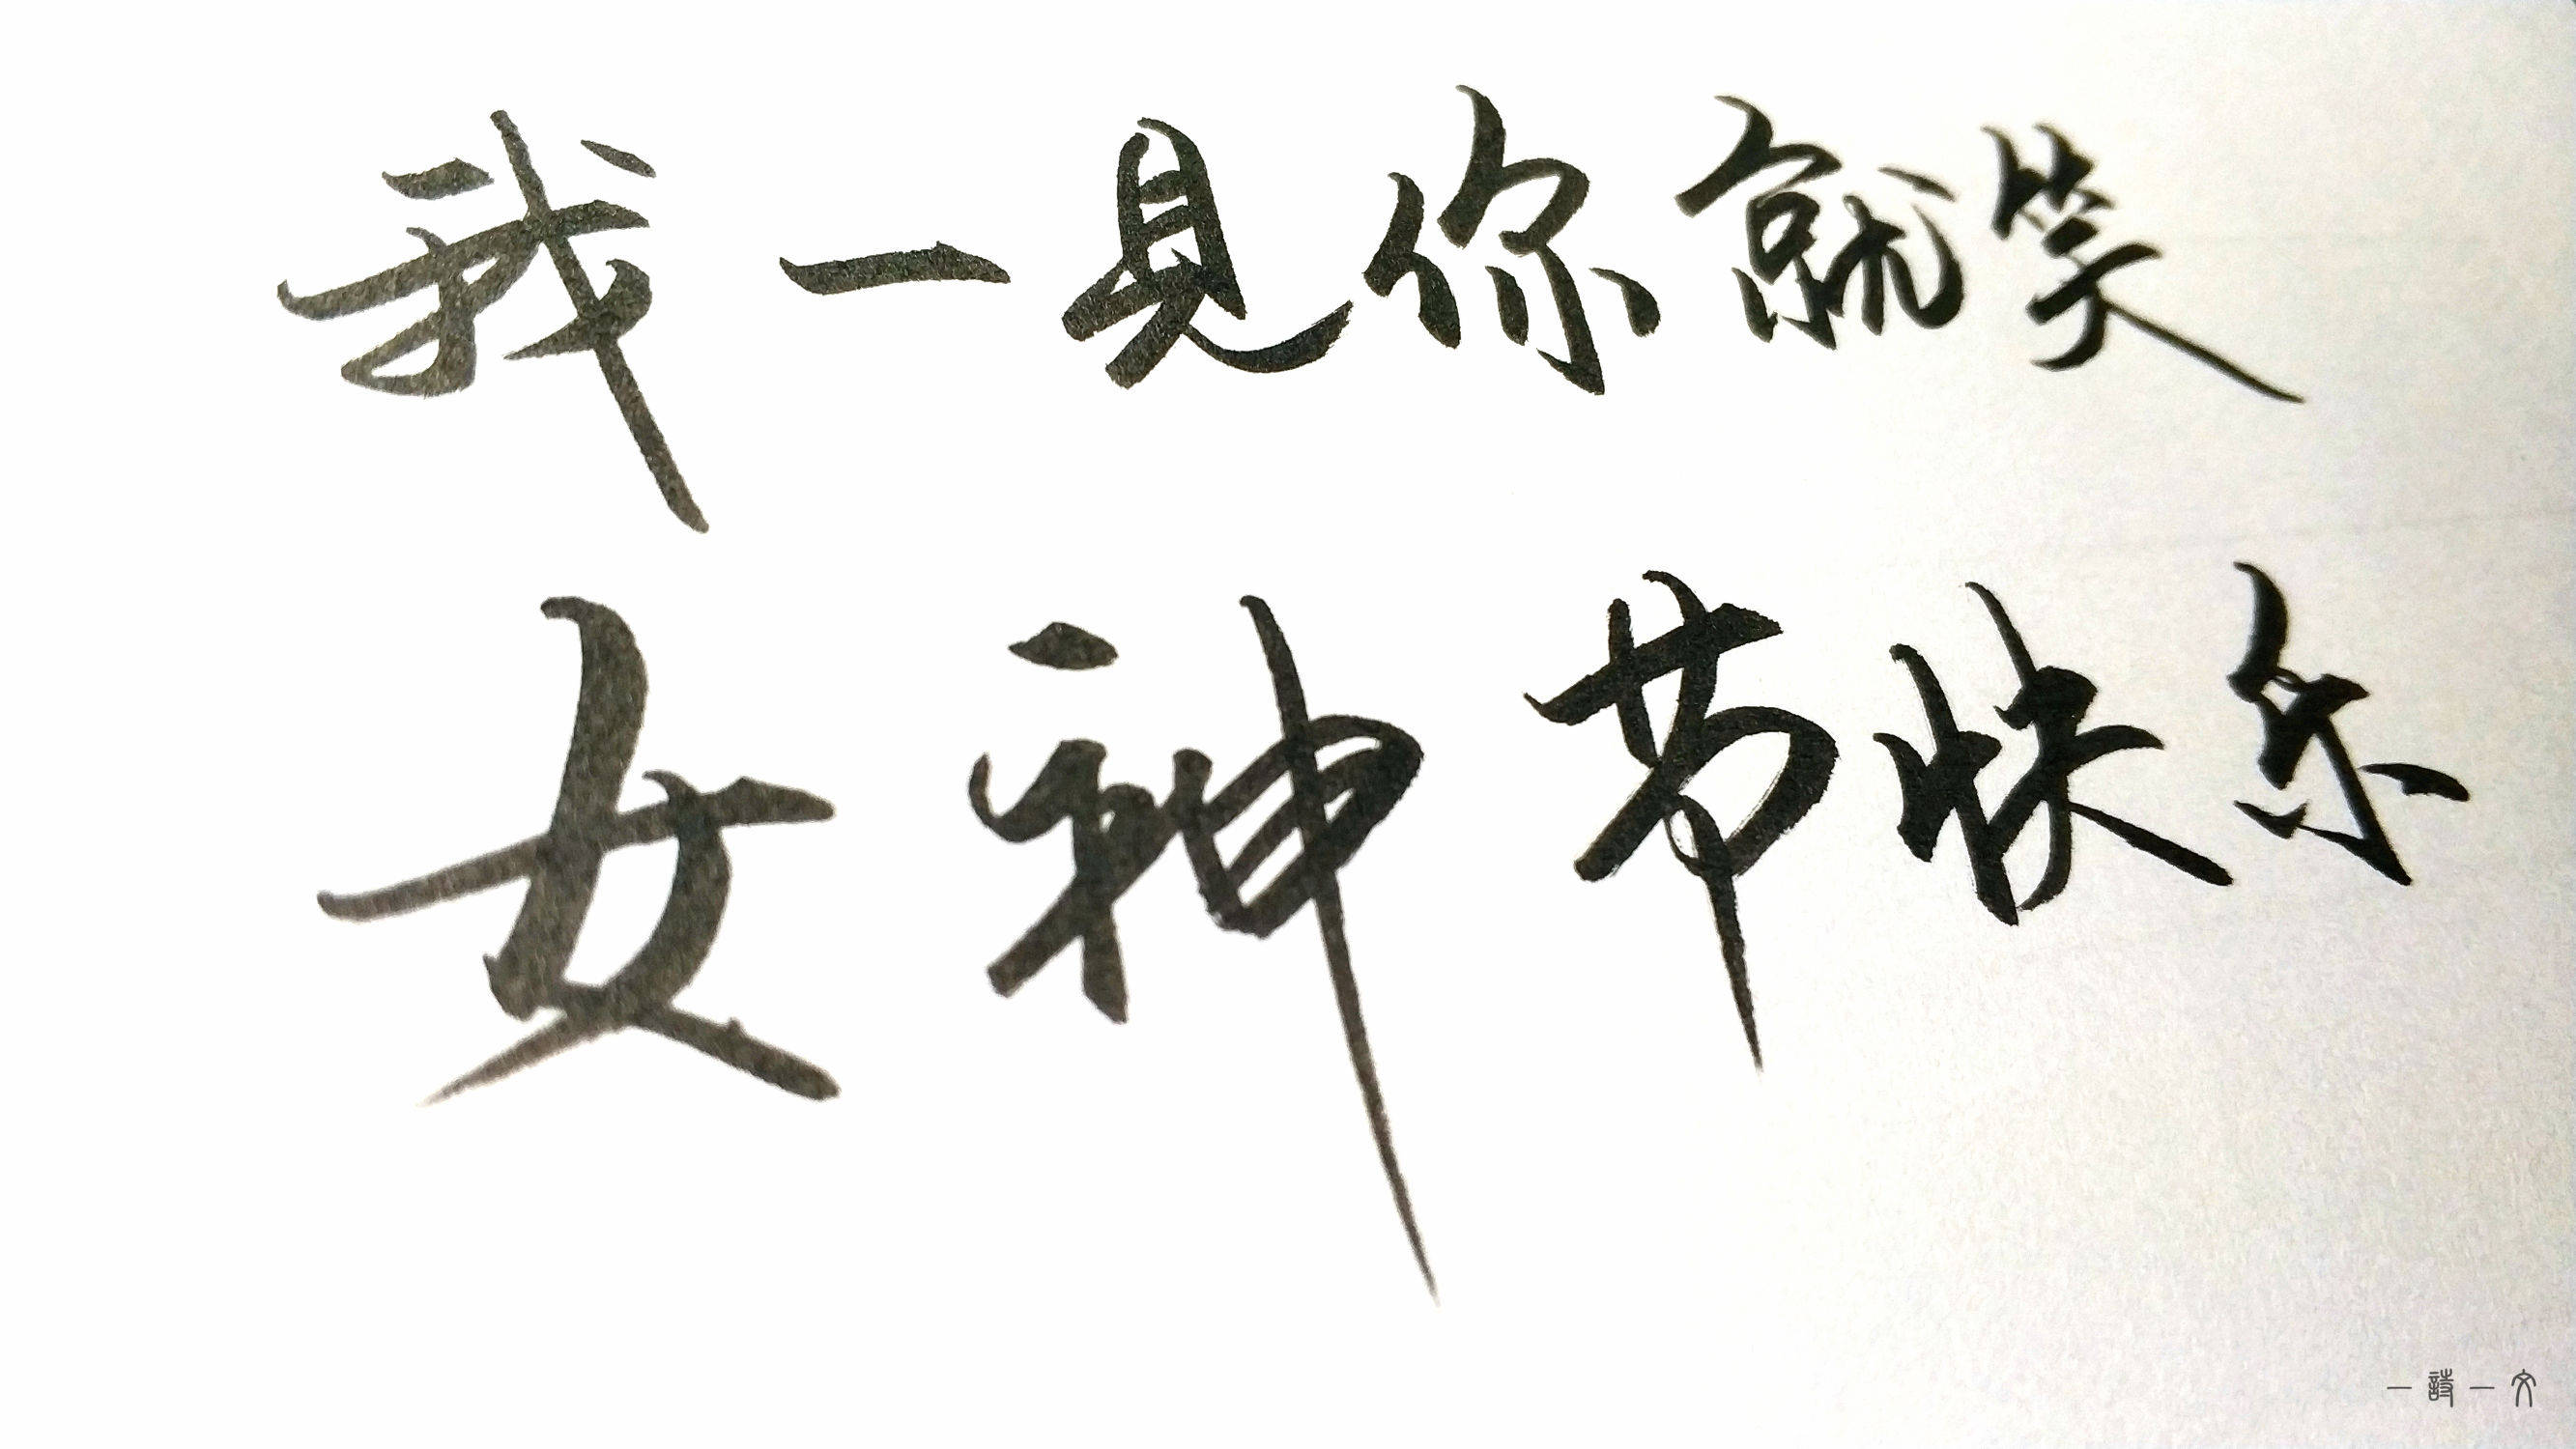 我一見你就笑
女神节快乐
一詩一文